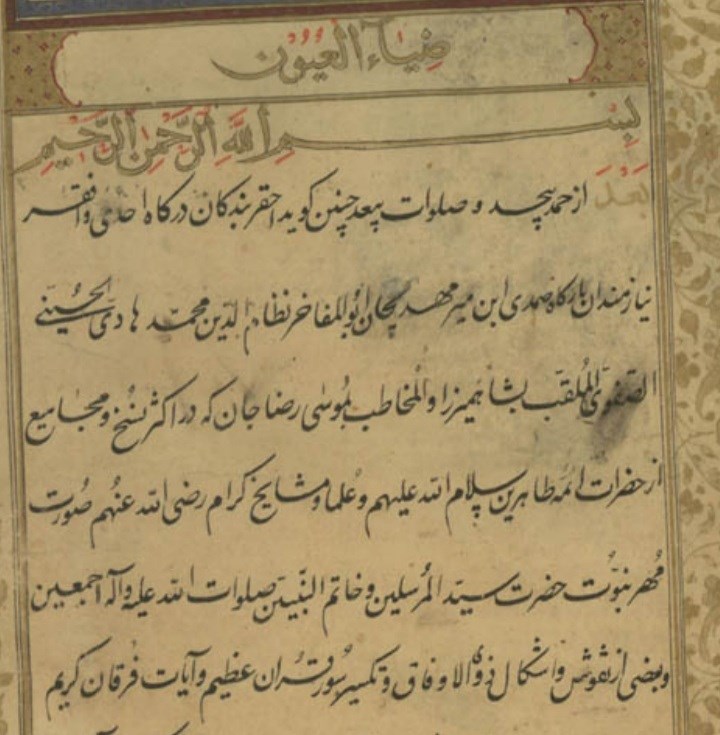 ضیاء العیون
بسم الله الرحمن الرحیم
بعد از حمد بیحد و صلوات بیعد چنین کوید احقر بندکان درکاه احدی و افقر
نیازمندان بارکاه صمدی ابن میر مهدیجان ابوالمفاخر نظام الدین محمد هادی الحسینی
الصفوی الملقب بشاهمیرزا و المخاطب بموسی رضا جان که در اکثر نسخ و مجامیع
از حضرات ائمه طاهرین سلام الله علیهم و علما و مشایخ کرام رضی الله عنهم صورت
مهر نبوت حضرت سید المرسلین و خاتم النبیین صلوات الله علیه وآله اجمعین
و بعضی از نقوش و اشکال ذوی الاوفاق و تکسیر سور قران عظیم و آیات فرقان کریم